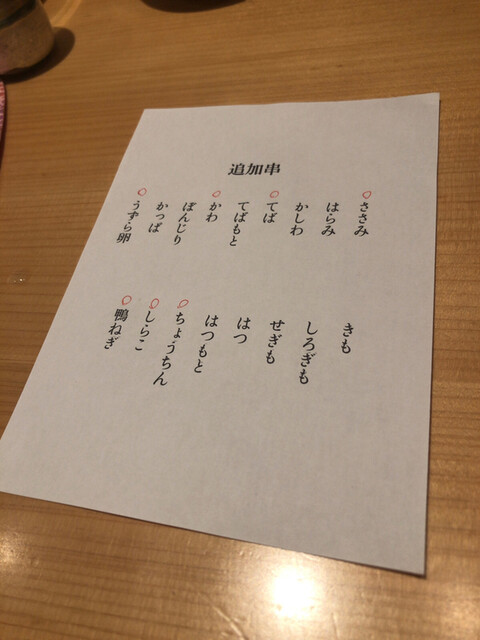 追加串
ささみ
はらみ
かしわ
てば
てばもと
かわ
ぼんじり
かっぱ
うずら卵
きも
しろぎも
せぎも
はつ
はつもと
ちょうちん
しらこ
鴨ねぎ